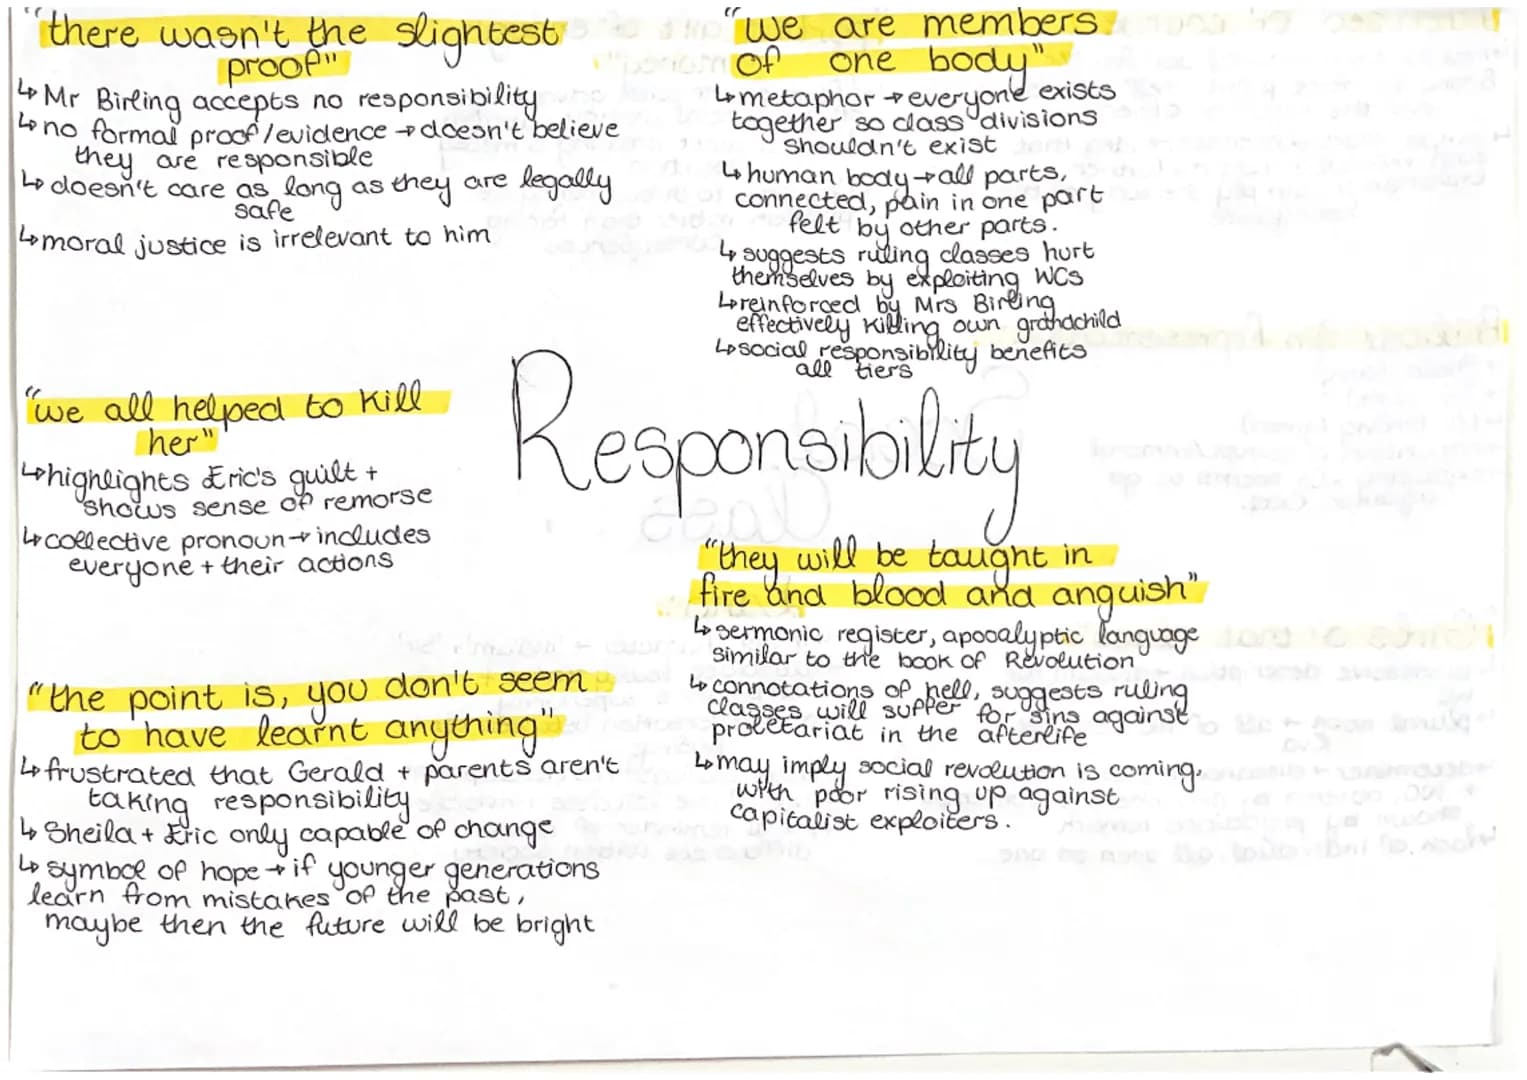 "there wasn't the slightest
proof"
↳ Mr Birling accepts no responsibility
↳ no formal proof/evidence → doesn't believe
they are responsible
↳ doesn't care as long as they are legally
safe
↳ moral justice is irrelevant to him
"we are members
of one body"
↳ metaphor → everyone exists
together so class divisions
shouldn't exist
↳ human body → all parts,
connected, pain in one part
felt by other parts.
↳ suggests ruling classes hurt
themselves by exploiting WCs
↳ reinforced by Mrs Birling
effectively killing own grandchild
↳ social responsibility benefits
all tiers
Responsibility
"we all helped to kill
her"
↳ highlights Eric's guilt +
shows sense of remorse
↳ collective pronoun → includes
everyone + their actions
"they will be taught in
fire and blood and anguish"
↳ sermonic register, apocalyptic language
similar to the book of Revolution.
↳ connotations of hell, suggests ruling
classes will suffer for sins against
proletariat in the afterlife
↳ may imply social revolution is coming,
with poor rising up against
capitalist exploiters.
"the point is, you don't seem
to have learnt anything"
↳ frustrated that Gerald + parents aren't
taking responsibility
↳ Sheila + Eric only capable of change
↳ symbol of hope → if younger generations
learn from mistakes of the past,
maybe then the future will be bright